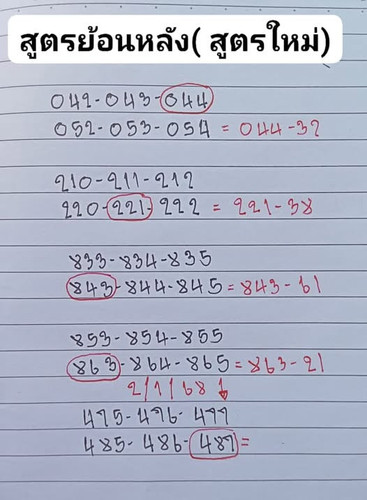 สูตรย้อนหลัง( สูตรใหม่)
042-043-044
052-053-054 = 044-32
210-211-212
220-221-222 = 221-38
833-834-835
843-844-845=843-61
853-854-855
863-864-865=863-21
2/1/68 ↓
475-476-477
485-486-487=